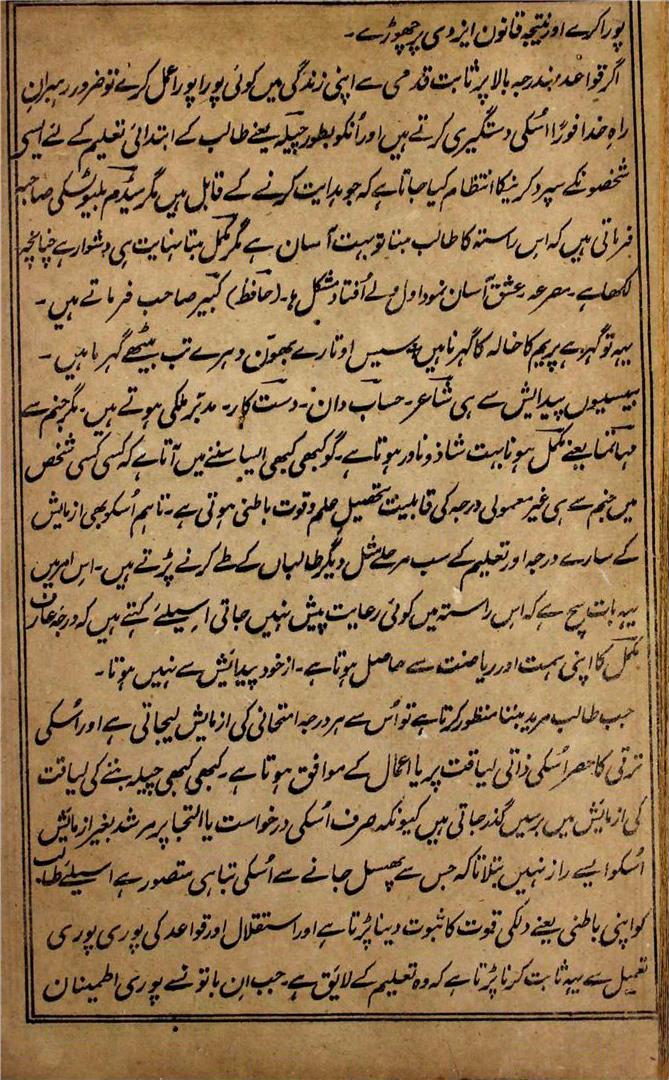 پورا کرے اور نتیجہ قانون ایزدی پر چھوڑے۔
اگر قواعد مندرجہ بالا پر ثابت قدمی سے اپنی زندگی میں کوئی پورا پورا عمل کرے تو ضرور رہبران
راہ خدا فوراً اُسکی دستگیری کرتے ہیں اور اُنکو بطور چیلہ یعنے طالب کے ابتدائی تعلیم کے لئے ایسی
شخصونکے سپرد کرنیکا انتظام کیا جاتا ہے کہ جو ہدایت کرنے کے قابل ہیں مگر میڈم بلیوٹسکی صاحبہ
فرماتی ہیں کہ اس راستہ کا طالب بننا تو بہت آسان ہے مگر مکمل بننا نہایت ہی دشوار ہے چنانچہ
لکھا ہے۔ مصرعہ۔ عشق آسان نمود اول ولے اُفتاد مشکل ہا۔ (حافظ) کبیر صاحب فرماتے ہیں۔
یہہ تو گہر ہے پریم کا خالہ کا گہر ناہیں سیس اوتارے بھوئن دہرے تب بیٹھے گہر ماہیں۔
بیسیوں پیدایش سے ہی شاعر۔ حساب دان۔ دست کار۔ مدبر ملکی ہوتے ہیں۔ مگر جنم سے
مہاتما یعنے مکمل ہونا بہت شاذ و نادر ہوتا ہے۔ گو کبھی کبھی ایسا سننے میں آتا ہے کہ کسی کسی شخص
میں جنم سے ہی غیر معمولی درجہ کی قابلیت تحصیل علم و قوت باطنی ہوتی ہے۔ تاہم اُسکو بھی ازمایش
کے سارے درجہ اور تعلیم کے سب مرحلے مثل دیگر طالبان کے طے کرنے پڑتے ہیں۔ اس امر میں
یہہ بات سچ ہے کہ اس راستہ میں کوئی رعایت پیش نہیں جاتی اسیلئے کہتے ہیں کہ درجہ عارف
مکمل کا اپنی ہمت اور ریاضت سے حاصل ہوتا ہے۔ از خود پیدائش سے نہیں ہوتا۔
جب طالب مرید بننا منظور کرتا ہے تو اُس سے ہر درجہ امتحانی کی ازمایش لیجاتی ہے اور اُسکی
ترقی کا حصر اُسکی ذاتی لیاقت پر یا اعمال کے موافق ہوتا ہے۔ کبھی کبھی چیلہ بننے کی لیاقت
کی ازمایش میں برسیں گذر جاتی ہیں کیونکہ صرف اُسکی درخواست یا التجا پر مرشد بغیر ازمایش
اُسکو ایسے راز نہیں بتلاتا کہ جس سے پھسل جانے سے اُسکی تباہی متصور ہے اسیلئے طالب
کو اپنی باطنی یعنے دلکی قوت کا ثبوت دینا پڑتا ہے اور استقلال اور قواعد کی پوری پوری
تعمیل سے یہہ ثابت کرنا پڑتا ہے کہ وہ تعلیم کے لایق ہے۔ جب ان باتونسے پوری اطمینان